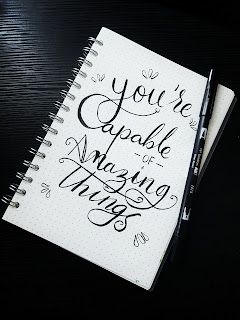 you're
Capable
OF
Amazing
Things